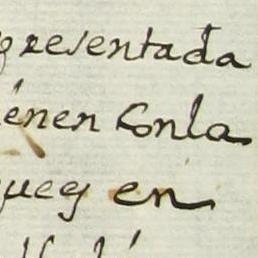 presentada
ienen Conla
quey en